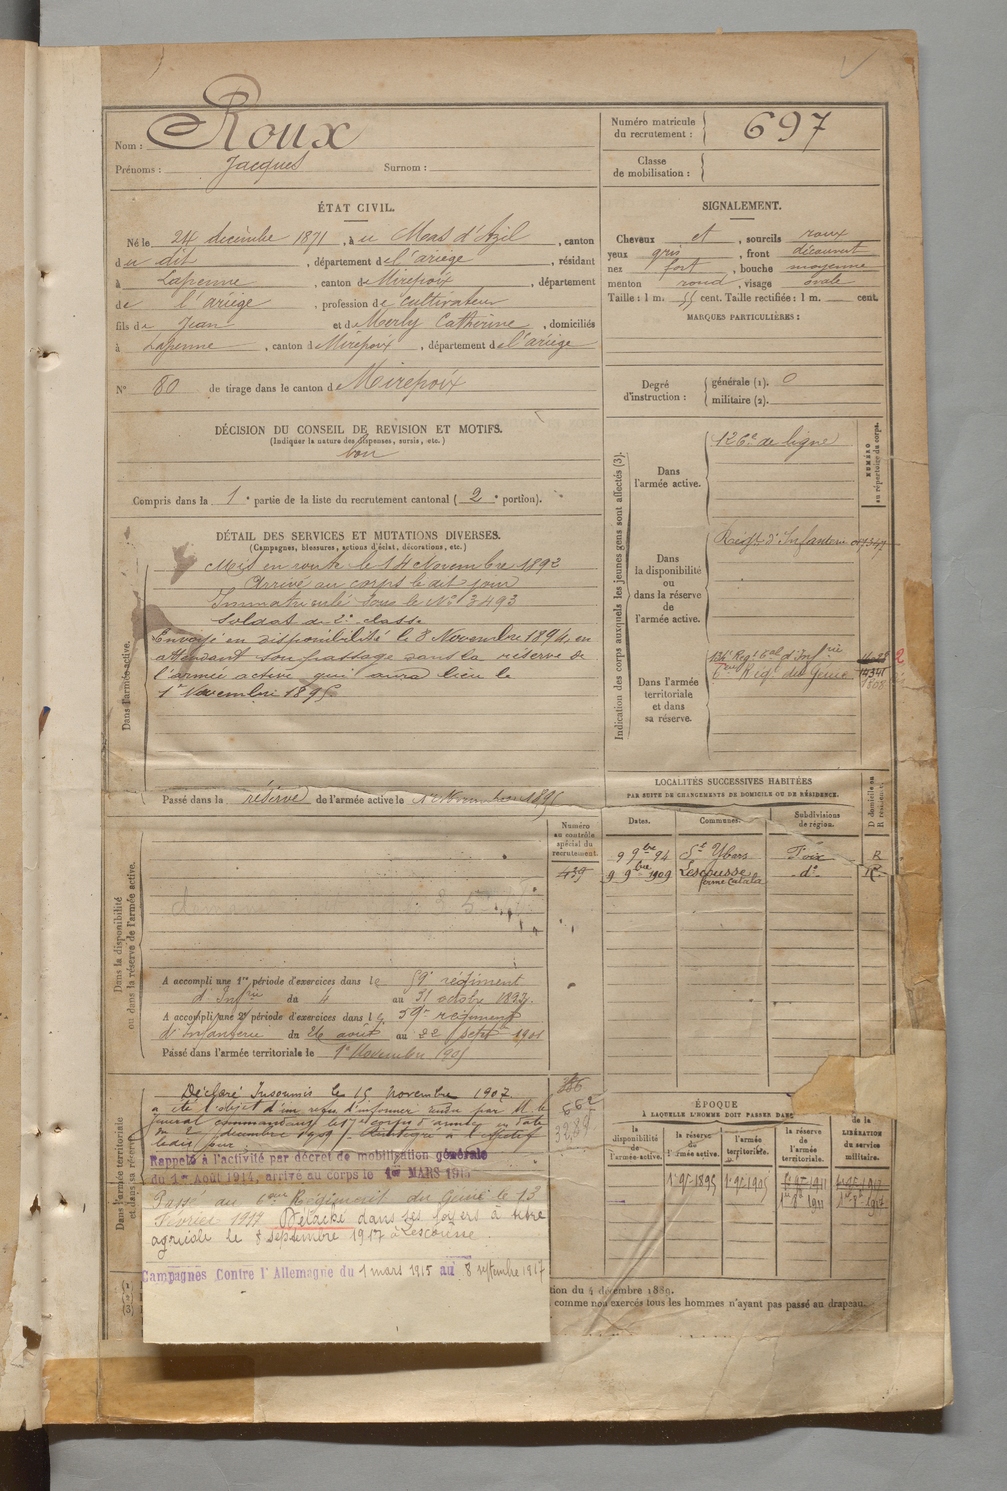 Nom : Roux
Prénoms : Jacques Surnom :
Numéro matricule
du recrutement : 697
Classe
de mobilisation :
ÉTAT CIVIL.
Né le 24 décembre 1871, à u Mas d'Azil, canton
du dit, département de l'ariège, résidant
à Lapenne, canton de Mirepoix, département
de l'ariège, profession de cultivateur
fils de Jean et de Merly Catherine, domiciliés
à Lapenne, canton de Mirepoix, département de l'ariège
N° 80 de tirage dans le canton de Mirepoix
SIGNALEMENT.
Cheveux et, sourcils roux
yeux gris, front découvert
nez fort, bouche moyenne
menton rond, visage ovale
Taille : 1 m. 55 cent. Taille rectifiée : 1 m. cent.
MARQUES PARTICULIÈRES :
Degré
d'instruction :
générale (1). 0
militaire (2).
DÉCISION DU CONSEIL DE REVISION ET MOTIFS.
(Indiquer la nature des dispenses, sursis, etc.)
bon
Compris dans la 1e partie de la liste du recrutement cantonal (2e portion).
DÉTAIL DES SERVICES ET MUTATIONS DIVERSES.
(Campagnes, blessures, actions d'éclat, décorations, etc.)
Dans l'armée active.
Mis en route le 14 Novembre 1892
Arrivé au corps le dit jour
Immatriculé sous le N° 3493
Soldat de 2e classe
Envoyé en disponibilité le 8 Novembre 1894 en
attendant son passage dans la réserve de
l'armée active qui aura lieu le
1er Novembre 1895
Passé dans la réserve de l'armée active le 1er Novembre 1895
Indication des corps auxquels les jeunes gens sont affectés (3).
NUMÉRO
au répertoire du corps.
Dans
l'armée active.
126e de ligne
Dans
la disponibilité
ou
dans la réserve
de
l'armée active.
Regt d'Infanterie
Dans l'armée
territoriale
et dans
sa réserve.
134e Regt tal d'Infrie
6eme Regt du Génie
14341
1808
LOCALITÉS SUCCESSIVES HABITÉES
PAR SUITE DE CHANGEMENTS DE DOMICILE OU DE RÉSIDENCE.
D domicile ou
R résidence.
Dates. Communes. Subdivisions
de région.
9 9bre 94 St Ybars Foix R
9 9bre 1909 Lescousse do R
ferme Catala
Numéro
au contrôle
spécial du
recrutement.
439
Dans la disponibilité
ou dans la réserve de l'armée active.
A accompli une 1re période d'exercices dans le 59e régiment
d'Infrie du 4 au 31 octobre
A accompli une 2e période d'exercices dans le 59e régiment
d'Infanterie du 26 août au 22 Septe 1901
Passé dans l'armée territoriale le 1er Novembre 1905
Dans l'armée territoriale
et dans sa réserve
Déclaré Insoumis le 15 Novembre 1907
a été l'objet d'un refus d'informer rendu par M. le
Général commandant le 17e corps d'armée en date
du 2 décembre 1909
Rappelé à l'activité par décret de mobilisation générale
du 1er Août 1914, arrivé au corps le 1er MARS 1915
Passé au 6eme Régiment du Génie le 13
Février 1917 Détaché dans ses foyers à titre
agricole le 8 septembre 1917 à Lescousse.
Campagnes Contre l'Allemagne du 1 mars 1915 au 8 septembre 1917
ÉPOQUE
À LAQUELLE L'HOMME DOIT PASSER DANS
de la
LIBÉRATION
du service
militaire.
la
disponibilité
de
l'armée active.
la réserve
de
l'armée active.
l'armée
territoriale.
la réserve
de
l'armée
territoriale.
1er 9bre 1895 1er 9bre 1905
tion du 4 décembre 1889.
comme non exercés tous les hommes n'ayant pas passé au drapeau.